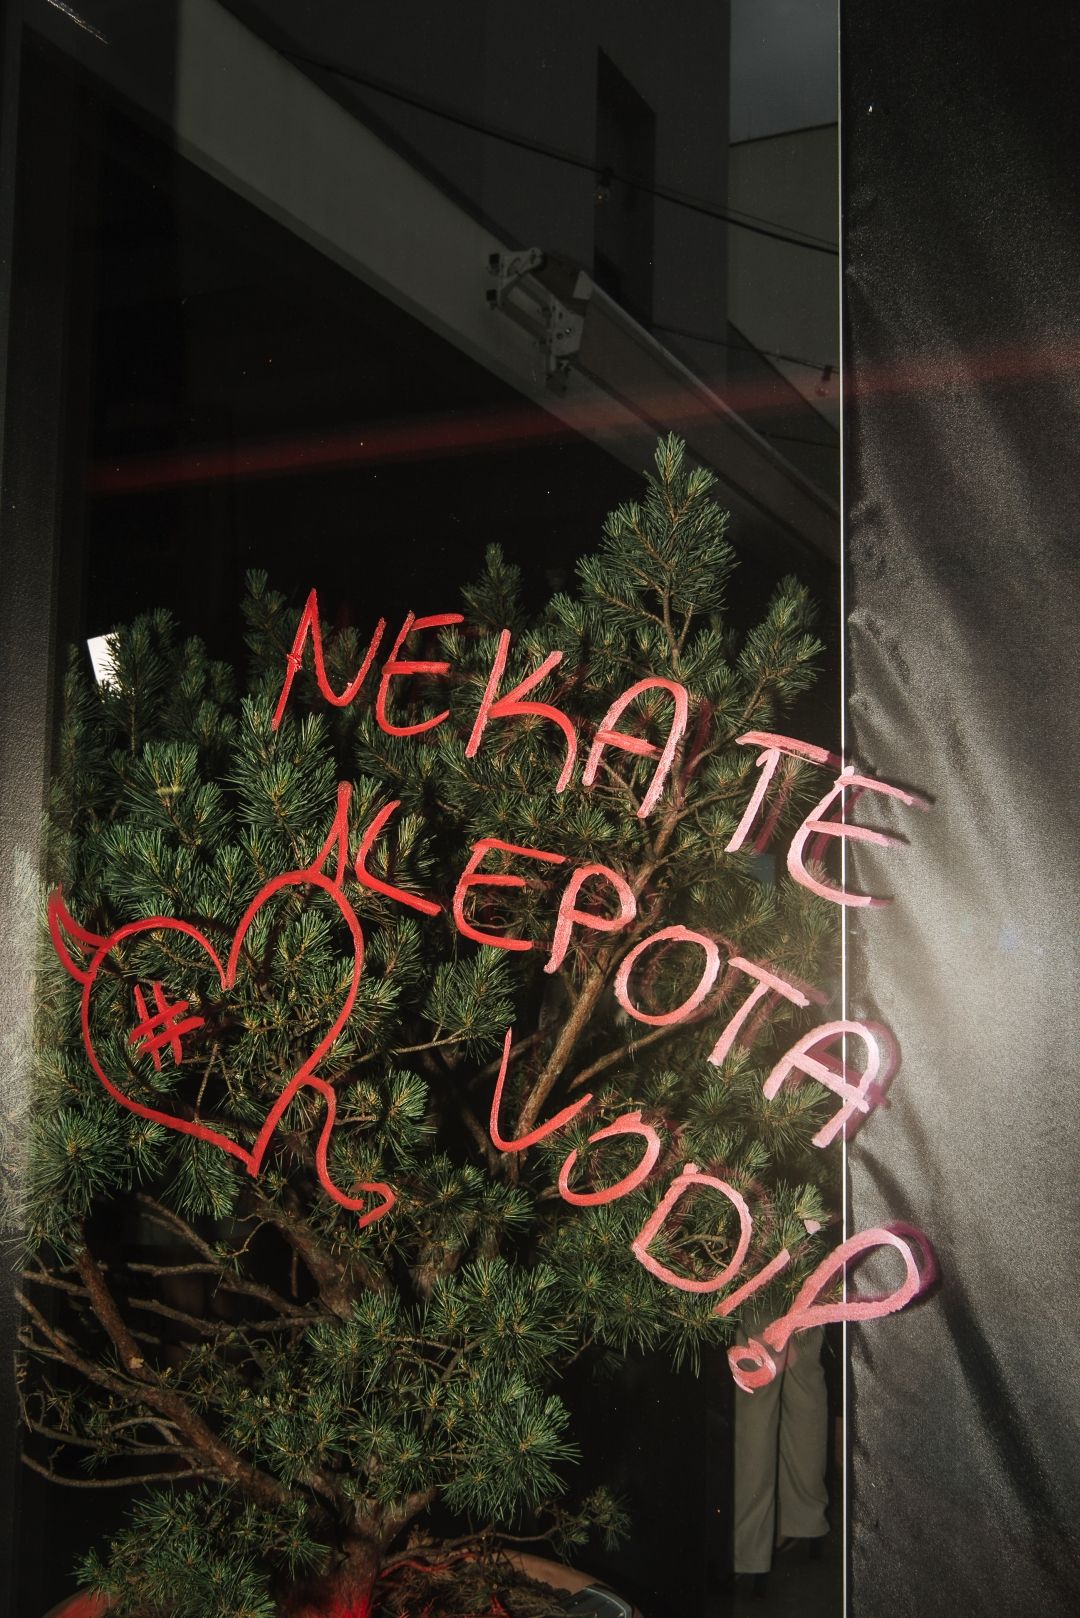 NEKA TE
LEPOTA
VODI?
#